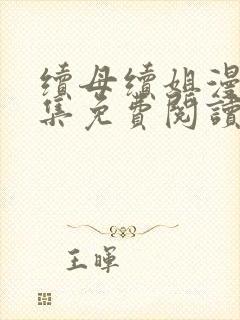 續母續姐漫
集免費閱讀
王暉